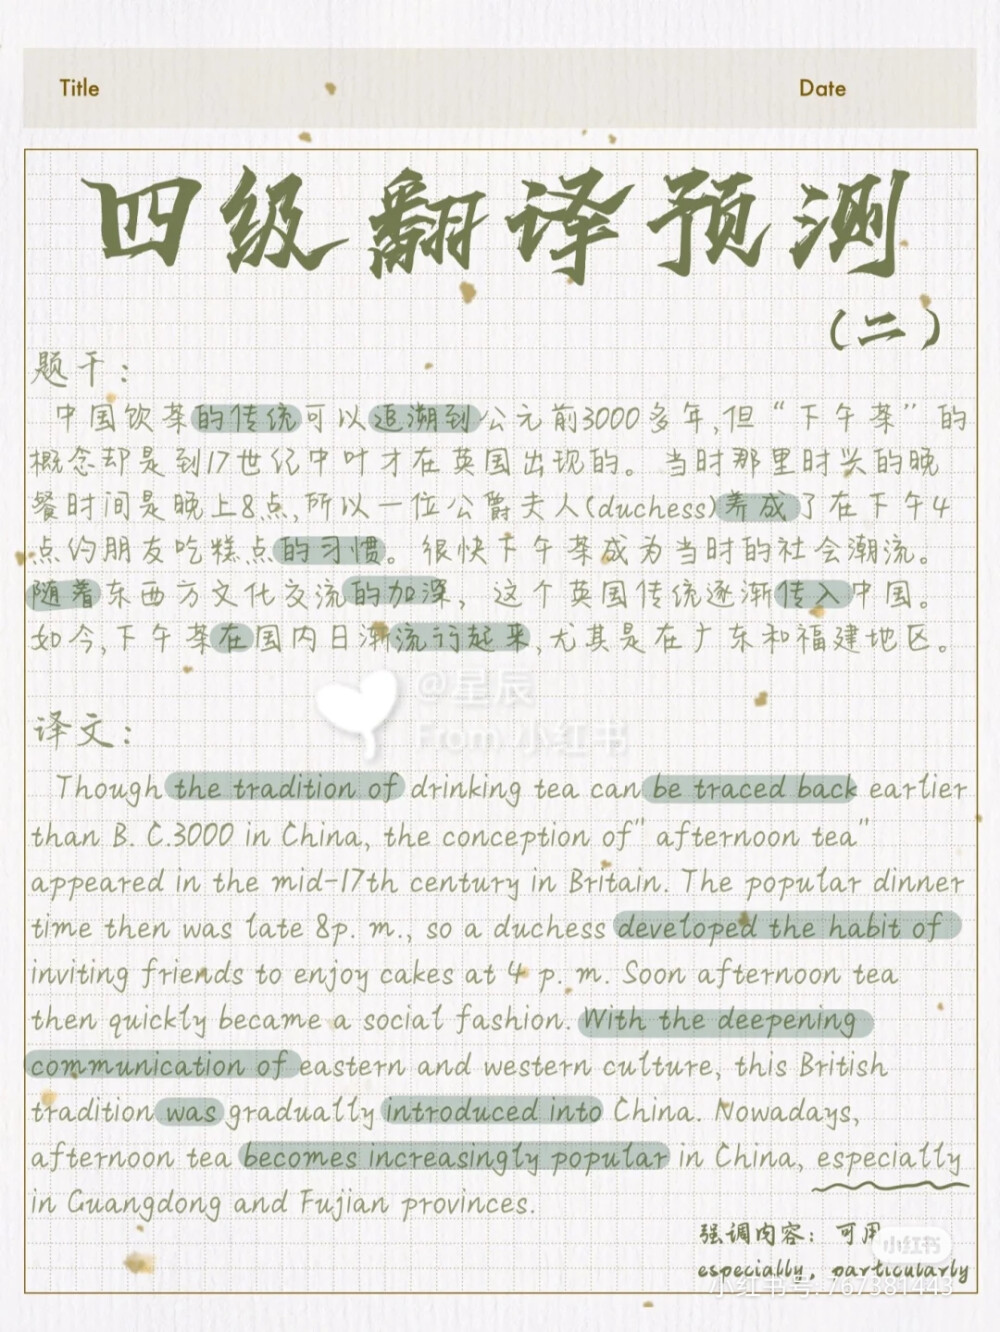 Title Date
四级翻译预测
（二）
题干：
中国饮茶的传统可以追溯到公元前3000多年,但“下午茶”的
概念却是到17世纪中叶才在英国出现的。当时那里时兴的晚
餐时间是晚上8点,所以一位公爵夫人(duchess)养成了在下午4
点约朋友吃糕点的习惯。很快下午茶成为当时的社会潮流。
随着东西方文化交流的加深，这个英国传统逐渐传入中国。
如今,下午茶在国内日渐流行起来,尤其是在广东和福建地区。
@星辰
From 小红书
译文：
Though the tradition of drinking tea can be traced back earlier
than B. C.3000 in China, the conception of" afternoon tea"
appeared in the mid-17th century in Britain. The popular dinner
time then was late 8p. m., so a duchess developed the habit of
inviting friends to enjoy cakes at 4 p. m. Soon afternoon tea
then quickly became a social fashion. With the deepening
communication of eastern and western culture, this British
tradition was gradually introduced into China. Nowadays,
afternoon tea becomes increasingly popular in China, especially
in Guangdong and Fujian provinces.
强调内容：可用
小红书
especially, particularly
小红书号:767381443